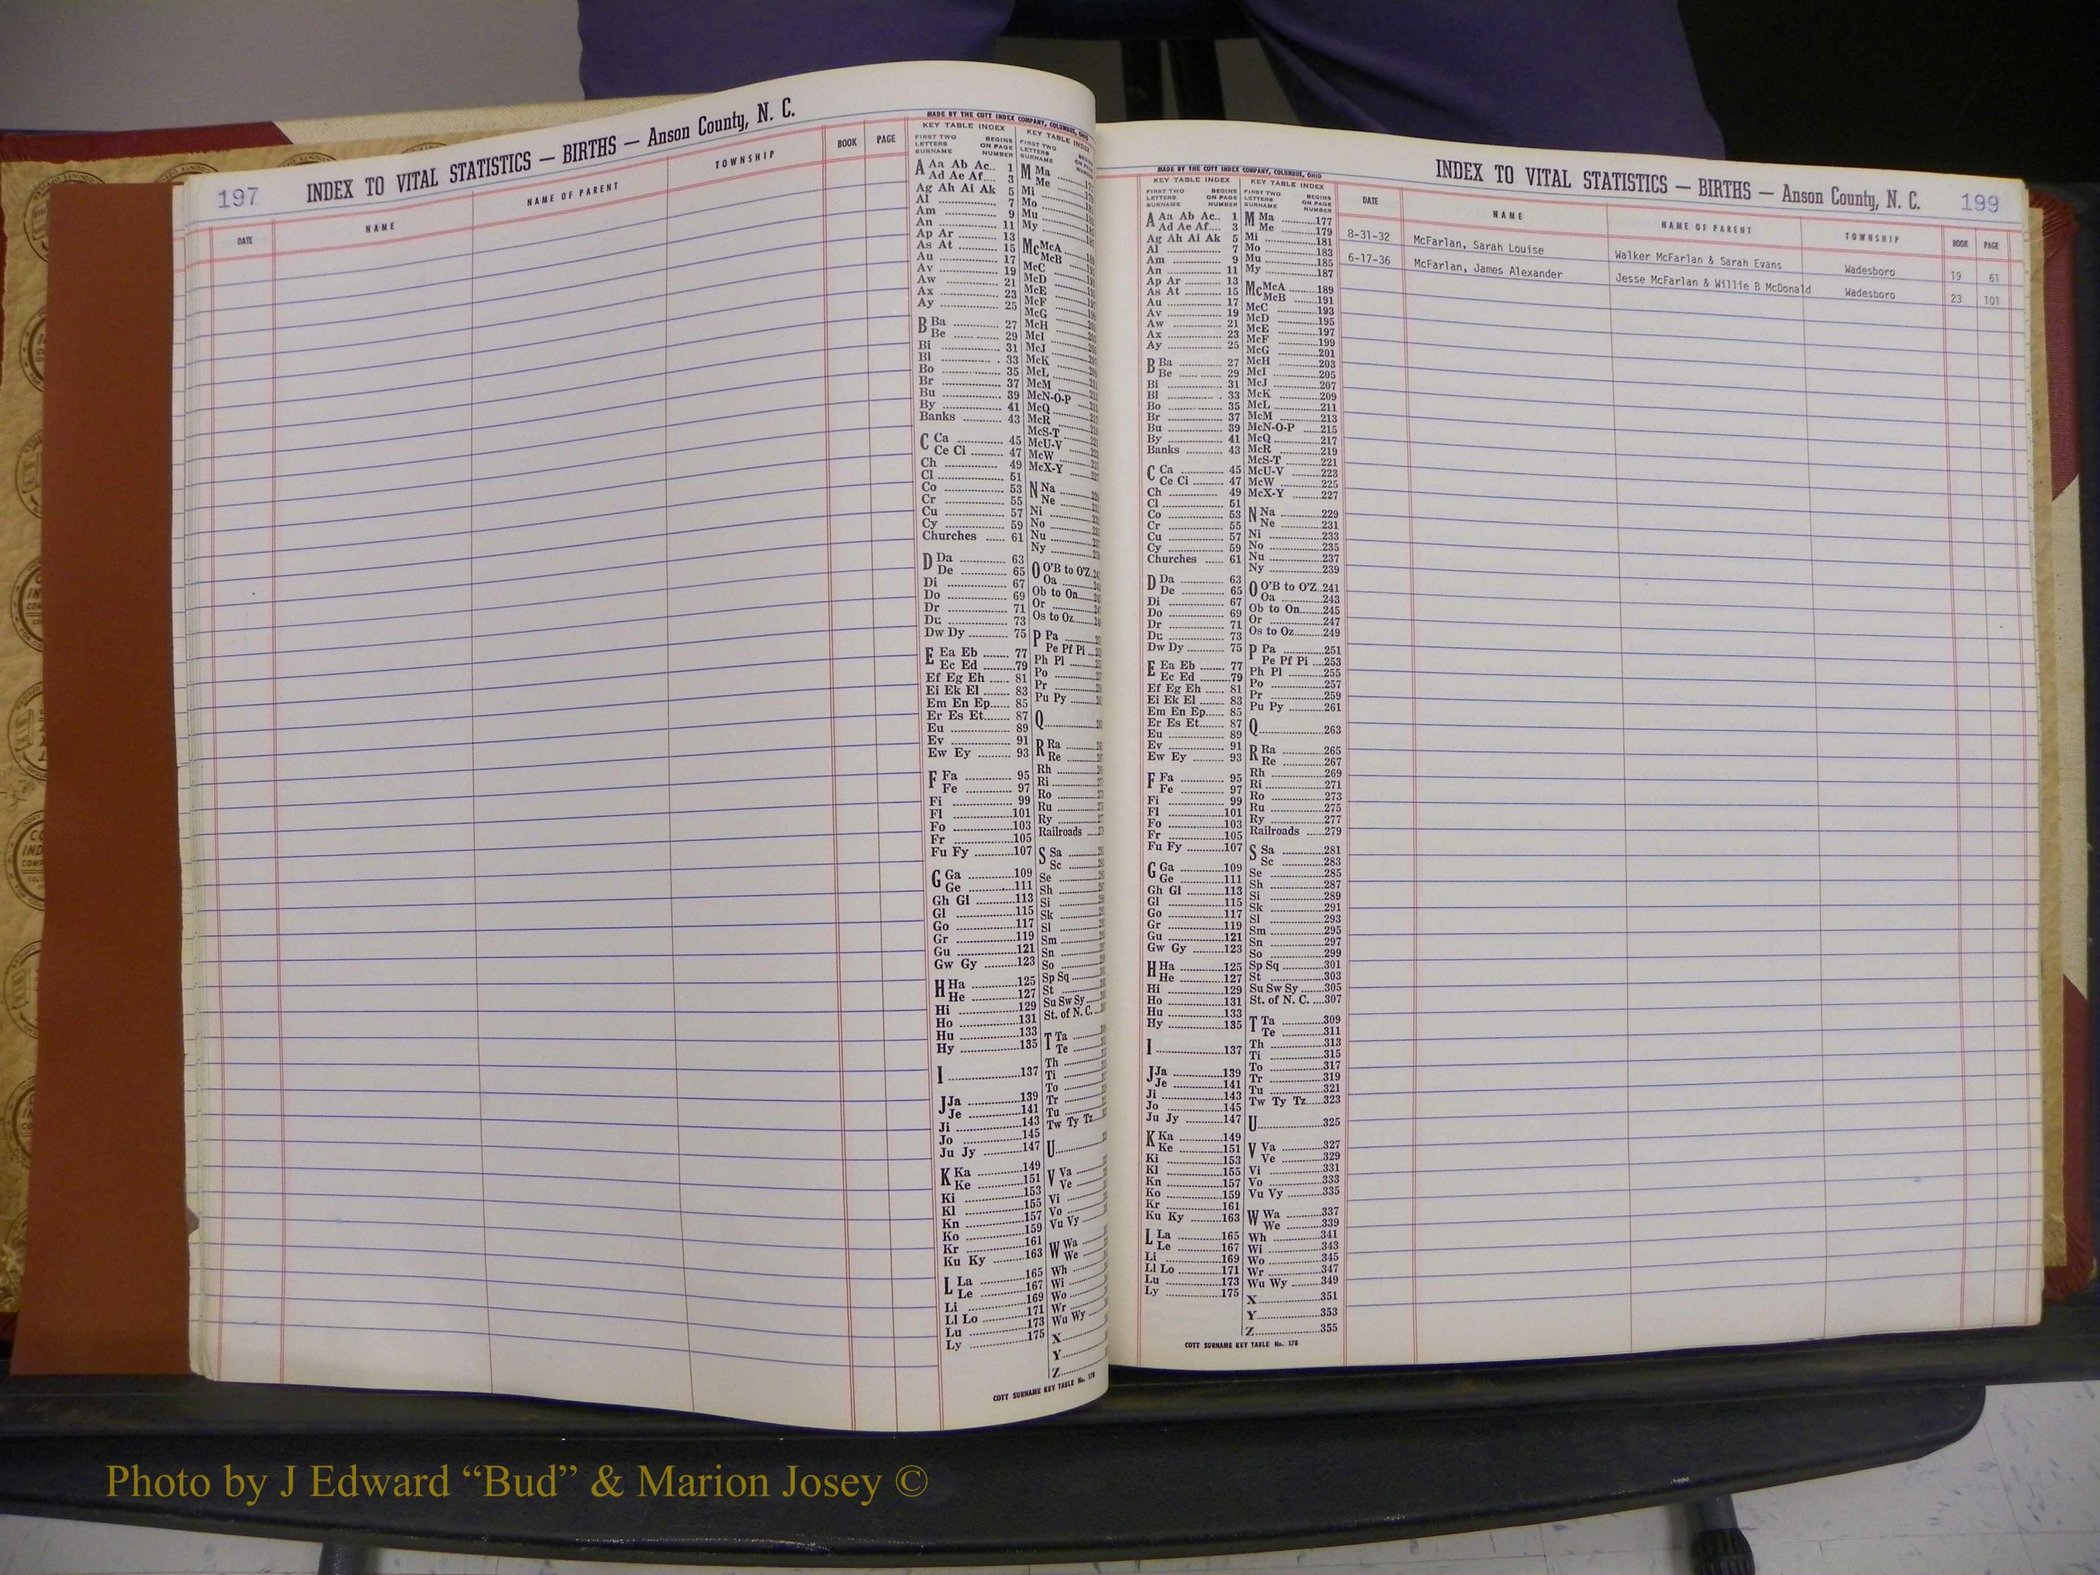 197 INDEX TO VITAL STATISTICS — BIRTHS — Anson County, N. C.
DATE NAME NAME OF PARENT TOWNSHIP BOOK PAGE
MADE BY THE COTT INDEX COMPANY, COLUMBUS, OHIO
KEY TABLE INDEX
FIRST TWO LETTERS SURNAME BEGINS ON PAGE NUMBER
A Aa Ab Ac.. 1
Ad Ae Af.... 3
Ag Ah Ai Ak 5
Al 7
Am 9
An 11
Ap Ar 13
As At 15
Au 17
Av 19
Aw 21
Ax 23
Ay 25
B Ba 27
Be 29
Bi 31
Bl 33
Bo 35
Br 37
Bu 39
By 41
Banks 43
C Ca 45
Ce Ci 47
Ch 49
Cl 51
Co 53
Cr 55
Cu 57
Cy 59
Churches 61
D Da 63
De 65
Di 67
Do 69
Dr 71
Du 73
Dw Dy 75
E Ea Eb 77
Ec Ed 79
Ef Eg Eh 81
Ei Ek El 83
Em En Ep 85
Er Es Et 87
Eu 89
Ev 91
Ew Ey 93
F Fa 95
Fe 97
Fi 99
Fl 101
Fo 103
Fr 105
Fu Fy 107
G Ga 109
Ge 111
Gh Gi 113
Gl 115
Go 117
Gr 119
Gu 121
Gw Gy 123
H Ha 125
He 127
Hi 129
Ho 131
Hu 133
Hy 135
I 137
J Ja 139
Je 141
Ji 143
Jo 145
Ju Jy 147
K Ka 149
Ke 151
Ki 153
Kl 155
Kn 157
Ko 159
Kr 161
Ku Ky 163
L La 165
Le 167
Li 169
Ll Lo 171
Lu 173
Ly 175
KEY TABLE INDEX
FIRST TWO LETTERS SURNAME
M Ma
Me
Mi
Mo
Mu
My
Mc McA
McB
McC
McD
McE
McF
McG
McH
McI
McJ
McK
McL
McM
McN-O-P
McQ
McR
McS-T
McU-V
McW
McX-Y
N Na
Ne
Ni
No
Nu
Ny
O O'B to O'Z
Oa
Ob to On
Or
Os to Oz
P Pa
Pe Pf Pi
Ph Pl
Po
Pr
Pu Py
Q
R Ra
Re
Rh
Ri
Ro
Ru
Ry
Railroads
S Sa
Sc
Se
Sh
Si
Sk
Sl
Sm
Sn
So
Sp Sq
St
Su Sw Sy
St. of N. C.
T Ta
Te
Th
Ti
To
Tr
Tu
Tw Ty Tz
U
V Va
Ve
Vi
Vo
Vu Vy
W Wa
We
Wh
Wi
Wo
Wr
Wu Wy
X
Y
Z
COTT SURNAME KEY TABLE No. 178
MADE BY THE COTT INDEX COMPANY, COLUMBUS, OHIO
KEY TABLE INDEX
FIRST TWO LETTERS SURNAME BEGINS ON PAGE NUMBER
A Aa Ab Ac.. 1
Ad Ae Af.... 3
Ag Ah Ai Ak 5
Al 7
Am 9
An 11
Ap Ar 13
As At 15
Au 17
Av 19
Aw 21
Ax 23
Ay 25
B Ba 27
Be 29
Bi 31
Bl 33
Bo 35
Br 37
Bu 39
By 41
Banks 43
C Ca 45
Ce Ci 47
Ch 49
Cl 51
Co 53
Cr 55
Cu 57
Cy 59
Churches 61
D Da 63
De 65
Di 67
Do 69
Dr 71
Du 73
Dw Dy 75
E Ea Eb 77
Ec Ed 79
Ef Eg Eh 81
Ei Ek El 83
Em En Ep 85
Er Es Et 87
Eu 89
Ev 91
Ew Ey 93
F Fa 95
Fe 97
Fi 99
Fl 101
Fo 103
Fr 105
Fu Fy 107
G Ga 109
Ge 111
Gh Gi 113
Gl 115
Go 117
Gr 119
Gu 121
Gw Gy 123
H Ha 125
He 127
Hi 129
Ho 131
Hu 133
Hy 135
I 137
J Ja 139
Je 141
Ji 143
Jo 145
Ju Jy 147
K Ka 149
Ke 151
Ki 153
Kl 155
Kn 157
Ko 159
Kr 161
Ku Ky 163
L La 165
Le 167
Li 169
Ll Lo 171
Lu 173
Ly 175
KEY TABLE INDEX
FIRST TWO LETTERS SURNAME BEGINS ON PAGE NUMBER
M Ma 177
Me 179
Mi 181
Mo 183
Mu 185
My 187
Mc McA 189
McB 191
McC 193
McD 195
McE 197
McF 199
McG 201
McH 203
McI 205
McJ 207
McK 209
McL 211
McM 213
McN-O-P 215
McQ 217
McR 219
McS-T 221
McU-V 223
McW 225
McX-Y 227
N Na 229
Ne 231
Ni 233
No 235
Nu 237
Ny 239
O O'B to O'Z 241
Oa 243
Ob to On 245
Or 247
Os to Oz 249
P Pa 251
Pe Pf Pi 253
Ph Pl 255
Po 257
Pr 259
Pu Py 261
Q 263
R Ra 265
Re 267
Rh 269
Ri 271
Ro 273
Ru 275
Ry 277
Railroads 279
S Sa 281
Sc 283
Se 285
Sh 287
Si 289
Sk 291
Sl 293
Sm 295
Sn 297
So 299
Sp Sq 301
St 303
Su Sw Sy 305
St. of N. C. 307
T Ta 309
Te 311
Th 313
Ti 315
To 317
Tr 319
Tu 321
Tw Ty Tz 323
U 325
V Va 327
Ve 329
Vi 331
Vo 333
Vu Vy 335
W Wa 337
We 339
Wh 341
Wi 343
Wo 345
Wr 347
Wu Wy 349
X 351
Y 353
Z 355
COTT SURNAME KEY TABLE No. 178
INDEX TO VITAL STATISTICS — BIRTHS — Anson County, N. C. 199
DATE NAME NAME OF PARENT TOWNSHIP BOOK PAGE
8-31-32 McFarlan, Sarah Louise Walker McFarlan & Sarah Evans Wadesboro 19 61
6-17-36 McFarlan, James Alexander Jesse McFarlan & Willie B McDonald Wadesboro 23 101
Photo by J Edward “Bud” & Marion Josey ©